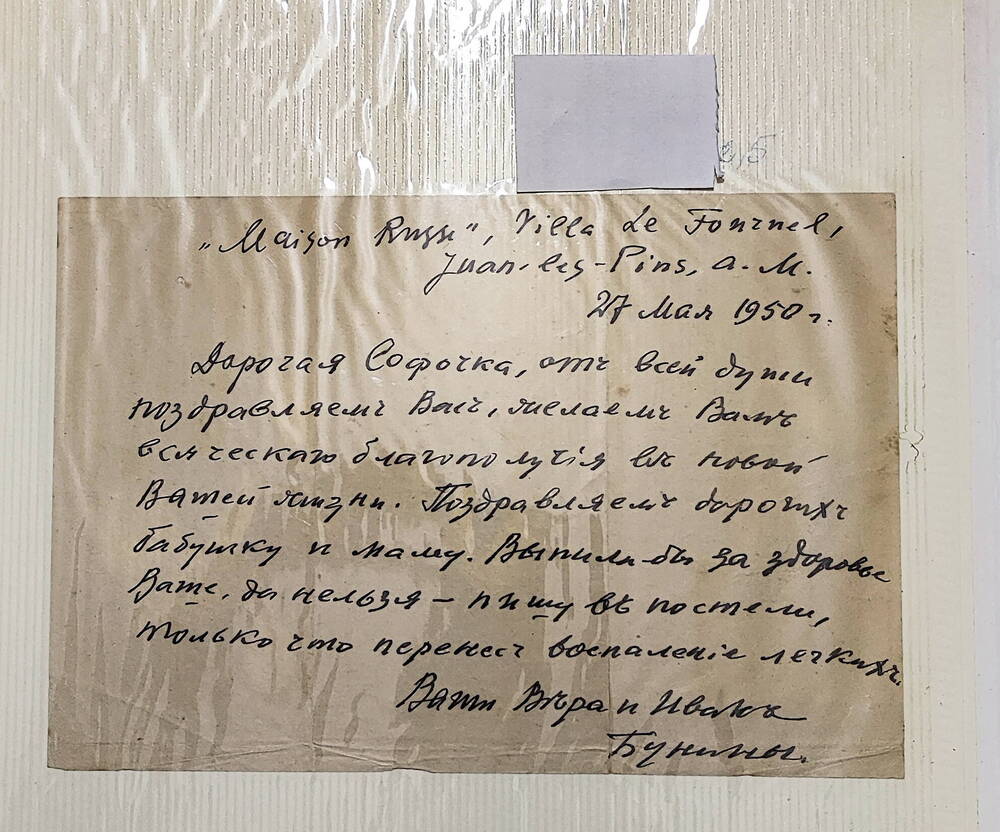 „Maison Russe“, Villa Le Fournel,
Juan-les-Pins, A.-M.
27 Мая 1950 г.
Дорогая Софочка, отъ всей души
поздравляемъ Васъ, желаемъ Вамъ
всяческаго благополучія въ новой
Вашей жизни. Поздравляемъ дорогихъ
бабушку и маму. Выпили-бы за здоровье
Ваше, да нельзя – пишу въ постели,
только что перенесъ воспаленіе легкихъ.
Ваши Вѣра и Иванъ
Бунины.